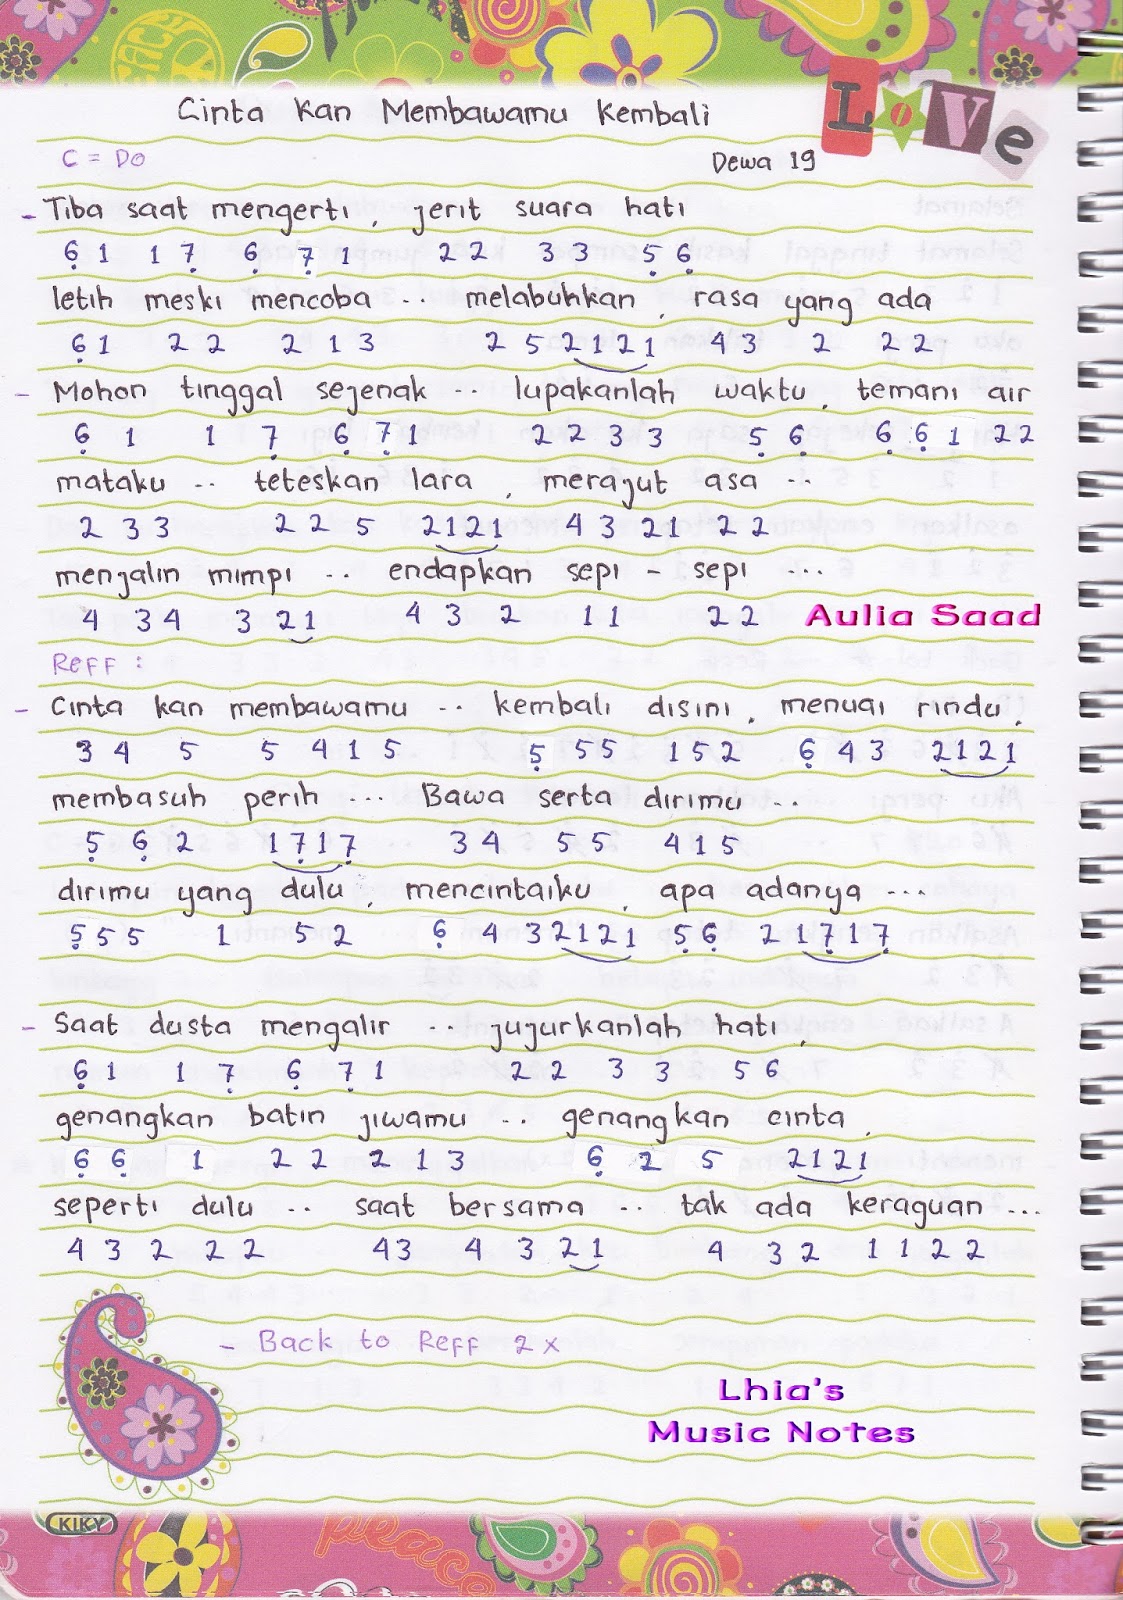 PEACE
LOVE
Cinta Kan Membawamu Kembali
C = DO
Dewa 19
- Tiba saat mengerti, jerit suara hati
6̣ 1 1 7̣ 6̣ 7̣ 1 2 2 3 3 5̣ 6̣
letih meski mencoba .. melabuhkan, rasa yang ada
6̣ 1 2 2 2 1 3 2 5 2 1 2 1 4 3 2 2 2
- Mohon tinggal sejenak .. lupakanlah waktu, temani air
6̣ 1 1 7̣ 6̣ 7̣ 1 2 2 3 3 5̣ 6̣ 6̣ 6̣ 1 2 2
mataku .. teteskan lara, merajut asa ..
2 3 3 2 2 5 2 1 2 1 4 3 2 1 2 2
menjalin mimpi .. endapkan sepi - sepi ...
4 3 4 3 2 1 4 3 2 1 1 2 2
Aulia Saad
Reff :
- Cinta kan membawamu .. kembali disini, menuai rindu,
3 4 5 5 4 1 5 5̣ 5 5 1 5 2 6̣ 4 3 2 1 2 1
membasuh perih ... Bawa serta dirimu ..
5̣ 6̣ 2 1 7̣ 1 7̣ 3 4 5 5 4 1 5
dirimu yang dulu, mencintaiku, apa adanya ...
5̣ 5 5 1 5 2 6̣ 4 3 2 1 2 1 5̣ 6̣ 2 1 7̣ 1 7̣
- Saat dusta mengalir .. jujurkanlah hati,
6̣ 1 1 7̣ 6̣ 7̣ 1 2 2 3 3 5 6
genangkan batin jiwamu .. genangkan cinta,
6̣ 6̣ 1 2 2 2 1 3 6̣ 2 5 2 1 2 1
seperti dulu .. saat bersama .. tak ada keraguan ...
4 3 2 2 2 4 3 4 3 2 1 4 3 2 1 1 2 2
- Back to Reff 2 x
Lhia's
Music Notes
KIKY
peace